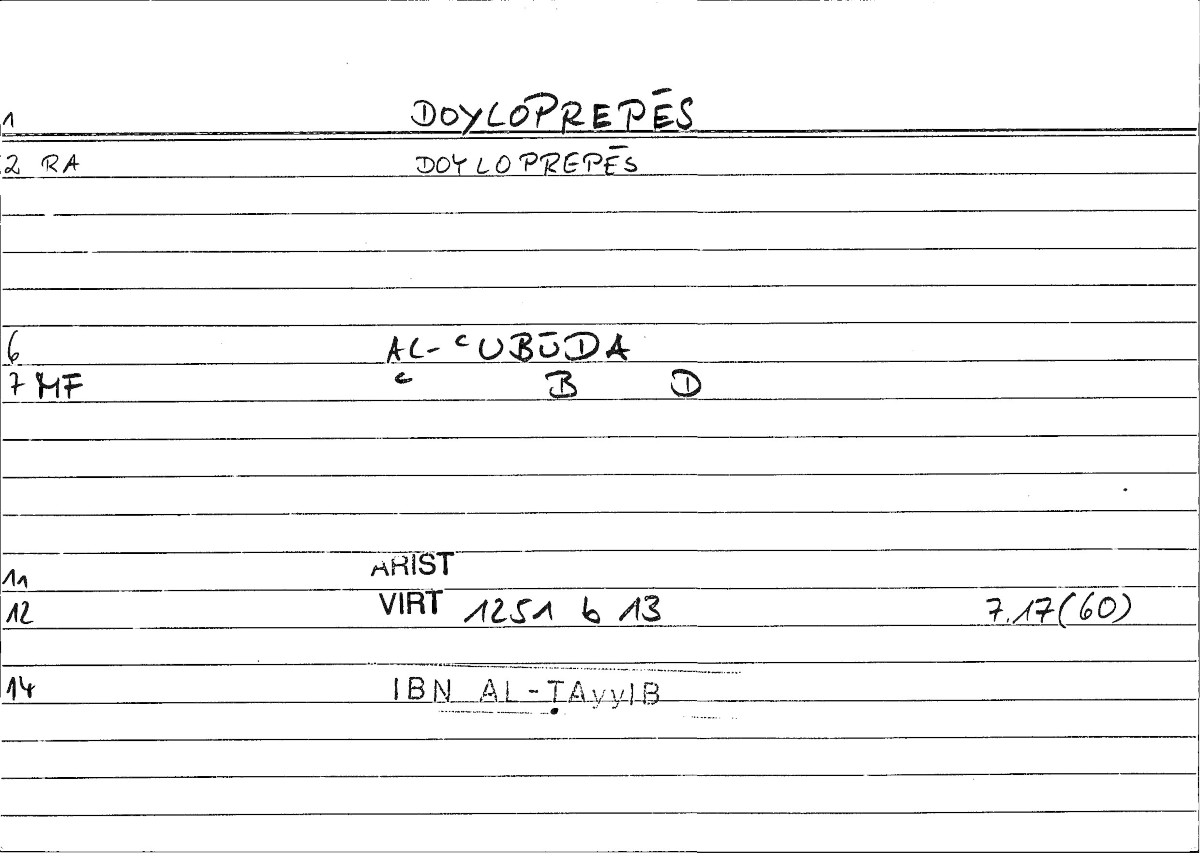 1 DOYLOPREPĒS
2 RA DOYLOPREPĒS
6 AL-ᶜUBŪDA
7 MF ᶜ B D
11 ARIST
12 VIRT 1251 b 13 7.17(60)
14 IBN AL-ṬAyyIB